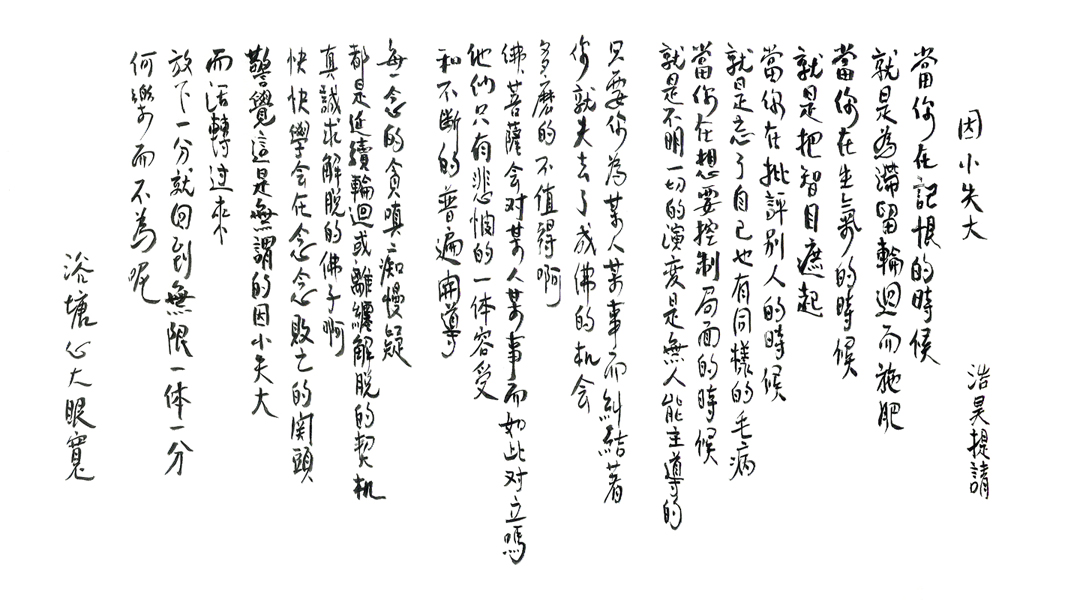 因小失大
浩昊提請
當你在記恨的時候
就是為滯留輪迴而施肥
當你在生氣的時候
就是把智目遮起
當你在批評別人的時候
就是忘了自己也有同樣的毛病
當你在想要控制局面的時候
就是不明一切的演变是無人能主導的
只要你為某人某事而糾結著
你就失去了成佛的机会
多麼的不值得啊
佛菩薩会对某人某事而如此对立嗎
他们只有悲悯的一体容受
和不断的普遍開導
每一念的貪嗔痴慢疑
都是延續輪迴或離纏解脫的契机
真誠求解脫的佛子啊
快快學会在念念敗亡的関頭
警覺這是無謂的因小失大
而活轉过来
放下一分就回到無限一体一分
何樂而不為呢
浴塘心大眼寬